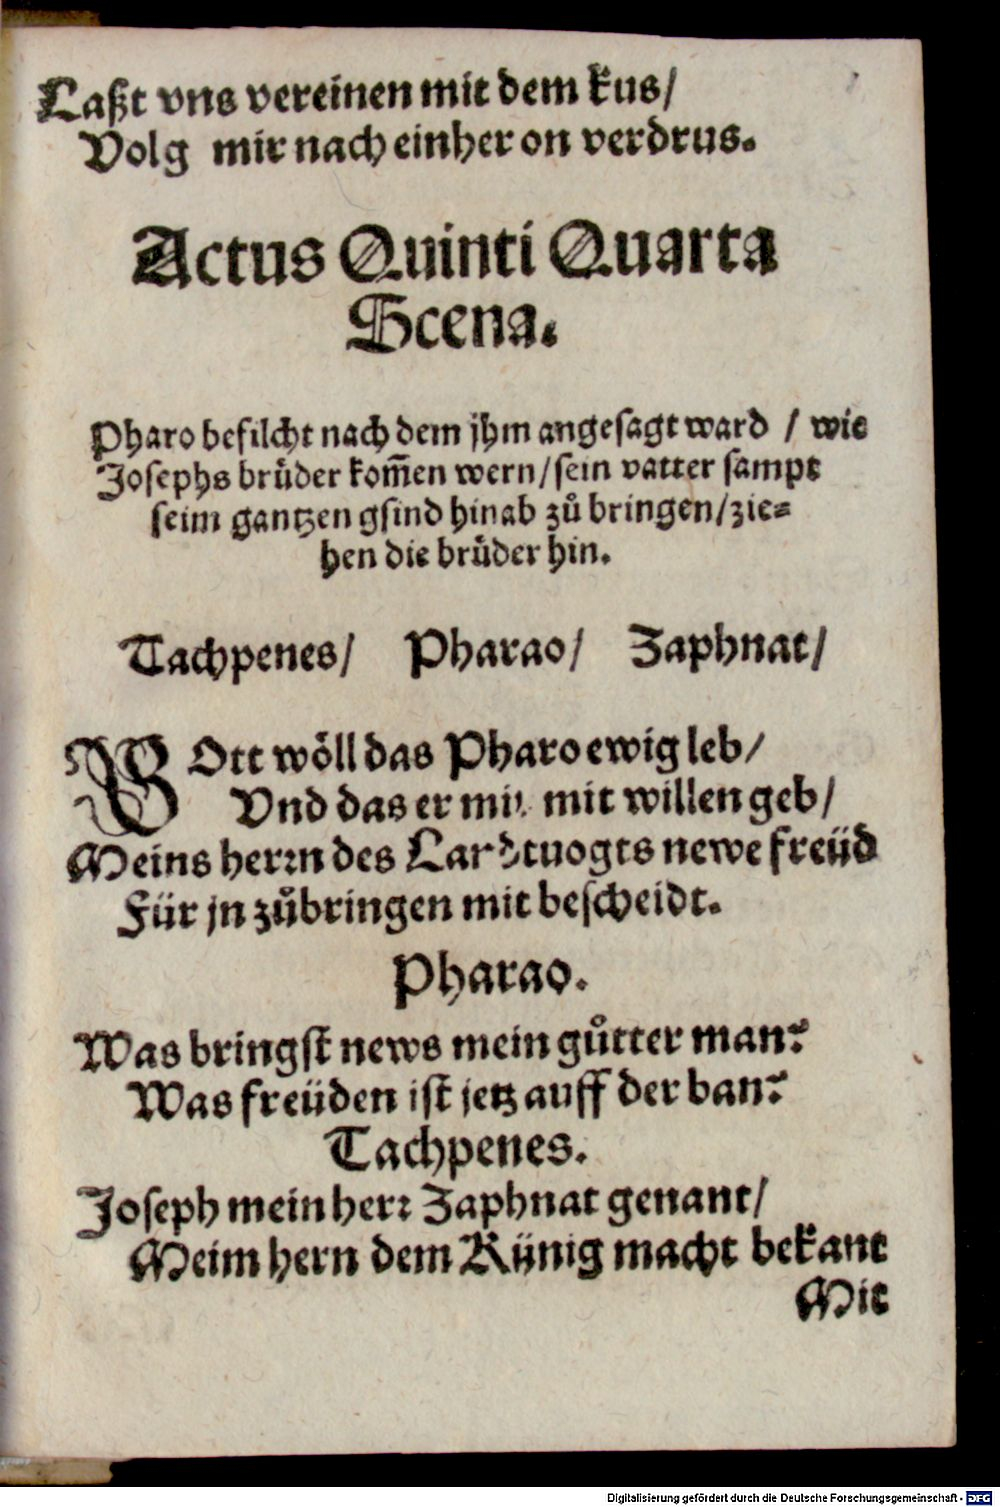 Laßt vns vereinen mit dem kus/
Volg mir nach einher on verdrus.
Actus Quinti Quarta
Scena.
Pharo befilcht nach dem jhm angesagt ward / wie
Josephs brůder kom̃en wern/sein vatter sampt
seim gantzen gsind hinab zů bringen/zie⸗
hen die brůder hin.
Tachpenes/ Pharao/ Zaphnat/
GOtt wöll das Pharo ewig leb/
Vnd das er mir mit willen geb/
Meins herꝛn des Landtuogts newe freüd
Für jn zůbringen mit bescheidt.
Pharao.
Was bringst news mein gůtter man?
Was freüden ist jetz auff der ban?
Tachpenes.
Joseph mein herꝛ Zaphnat genant/
Meim hern dem Künig macht bekant
Mit
Digitalisierung gefördert durch die Deutsche Forschungsgemeinschaft - DFG